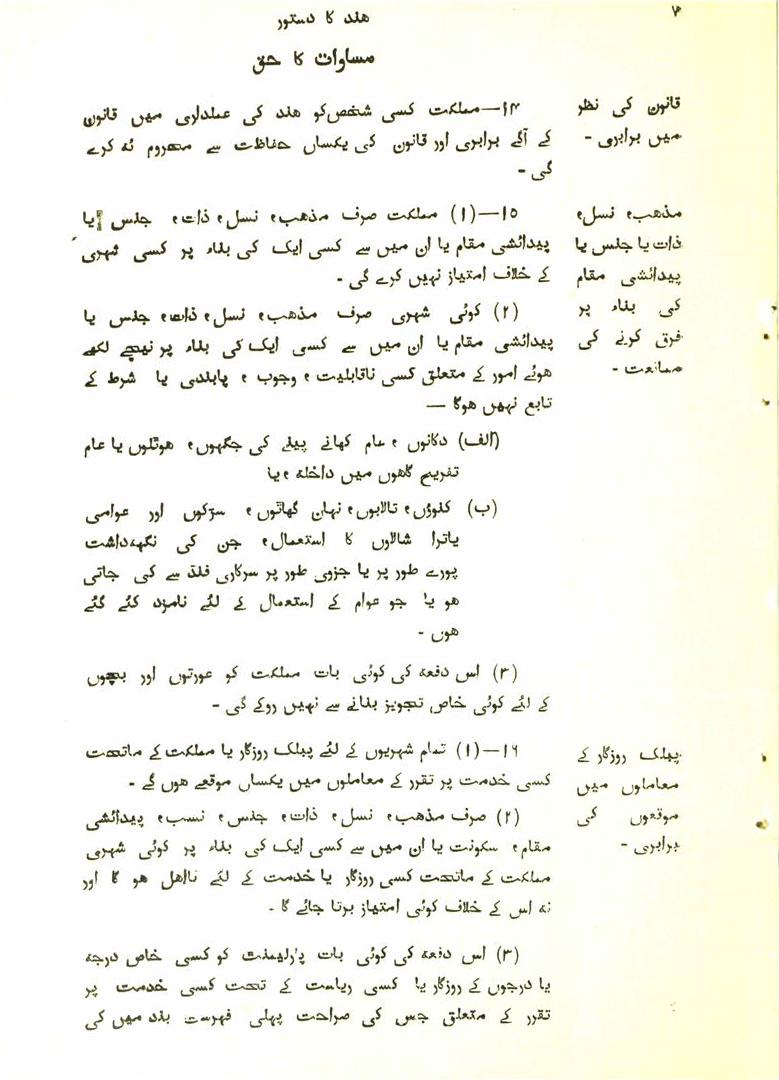 ۷
هند کا دستور
مساوات کا حق
قانون کی نظر
میں برابری -
۱۴—مملکت کسی شخص کو هند کی عملداری میں قانون
کے آگے برابری اور قانون کی یکساں حفاظت سے محروم نہ کرے
گی -
مذهب، نسل،
ذات یا جنس یا
پیدائشی مقام
کی بناء پر
فرق کرنے کی
ممانعت -
۱۵—(۱) مملکت صرف مذهب، نسل، ذات، جنس یا
پیدائشی مقام یا ان میں سے کسی ایک کی بناء پر کسی شہری
کے خلاف امتیاز نہیں کرے گی -
(۲) کوئی شہری صرف مذهب، نسل، ذات، جنس یا
پیدائشی مقام یا ان میں سے کسی ایک کی بناء پر نیچے لکھے
هوئے امور کے متعلق کسی ناقابلیت، وجوب، پابندی یا شرط کے
تابع نہیں هوگا —
(الف) دکانوں، عام کھانے پینے کی جگہوں، هوٹلوں یا عام
تفریح گاهوں میں داخلہ، یا
(ب) کنوؤں، تالابوں، نہان گھاٹوں، سڑکوں اور عوامی
یاترا شالاوں کا استعمال، جن کی نگہداشت
پورے طور پر یا جزوی طور پر سرکاری فنڈ سے کی جاتی
هو یا جو عوام کے استعمال کے لئے نامزد کئے گئے
هوں -
(۳) اس دفعہ کی کوئی بات مملکت کو عورتوں اور بچوں
کے لئے کوئی خاص تجویز بنانے سے نہیں روکے گی -
پبلک روزگار کے
معاملوں میں
موقعوں کی
برابری -
۱۶—(۱) تمام شہریوں کے لئے پبلک روزگار یا مملکت کے ماتحت
کسی خدمت پر تقرر کے معاملوں میں یکساں موقعے هوں گے -
(۲) صرف مذهب، نسل، ذات، جنس، نسب، پیدائشی
مقام، سکونت یا ان میں سے کسی ایک کی بناء پر کوئی شہری
مملکت کے ماتحت کسی روزگار یا خدمت کے لئے نااهل هو گا اور
نہ اس کے خلاف کوئی امتیاز برتا جائے گا -
(۳) اس دفعہ کی کوئی بات پارلیمنٹ کو کسی خاص درجہ
یا درجوں کے روزگار یا کسی ریاست کے تحت کسی خدمت پر
تقرر کے متعلق جس کی صراحت پہلی فہرست بند میں کی